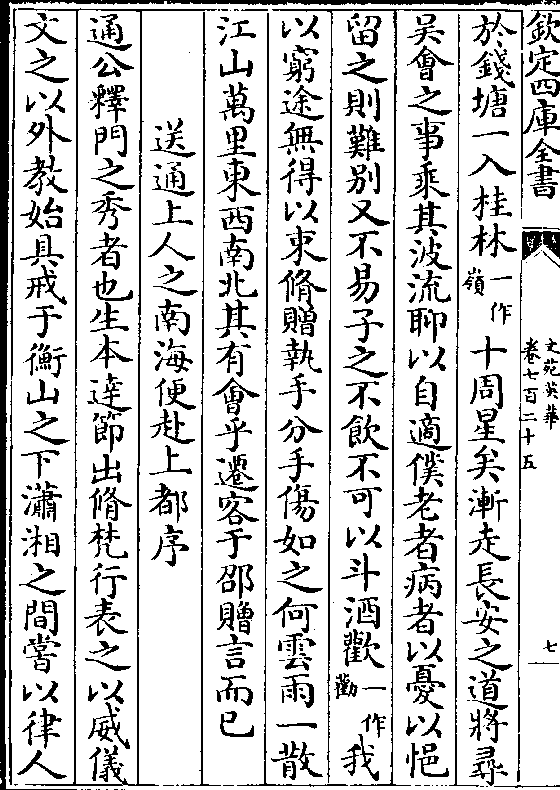 欽定四庫全書
文苑英華
卷七百二十五
七
於錢塘一入桂林一作嶺十周星矣漸走長安之道將尋
吳會之事乘其波流聊以自適僕老者病者以憂以悒
留之則難别又不易子之不飲不可以斗酒歡一作勸我
以窮途無得以束脩贈執手分手傷如之何雲雨一散
江山萬里東西南北其有會乎遷客于邵贈言而已
送通上人之南海便赴上都序
通公釋門之秀者也生本達節出脩梵行表之以威儀
文之以外教始具戒于衡山之下瀟湘之間嘗以律人